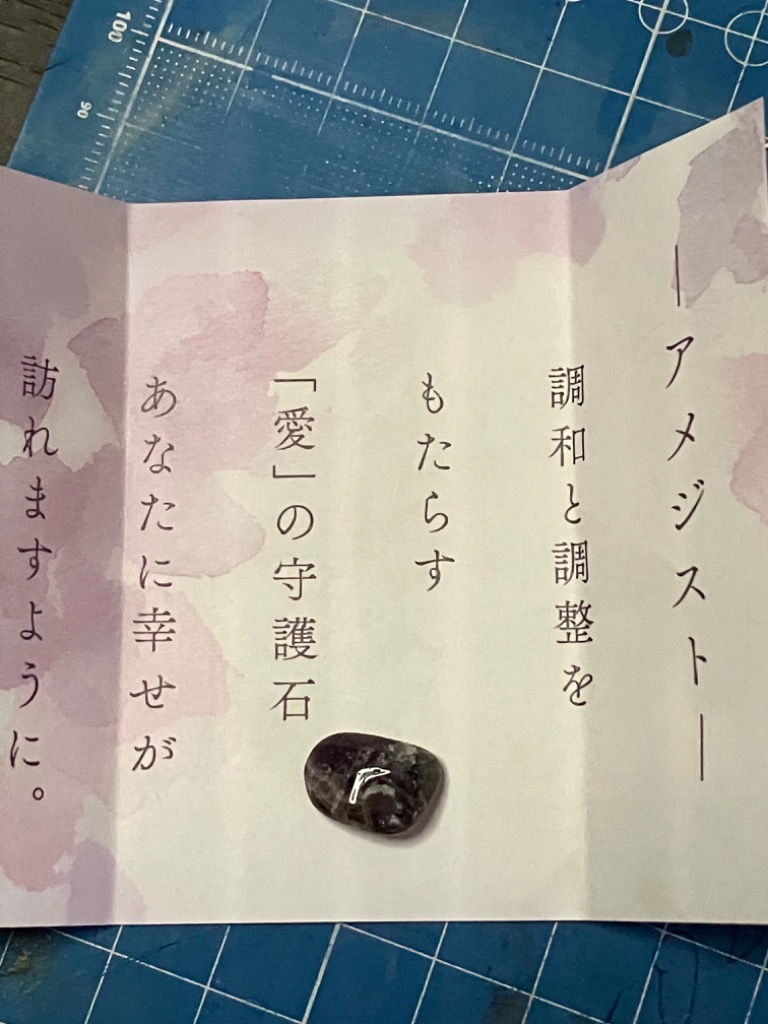 ―アメジスト―
調和と調整を
もたらす
「愛」の守護石
あなたに幸せが
訪れますように。
100
90